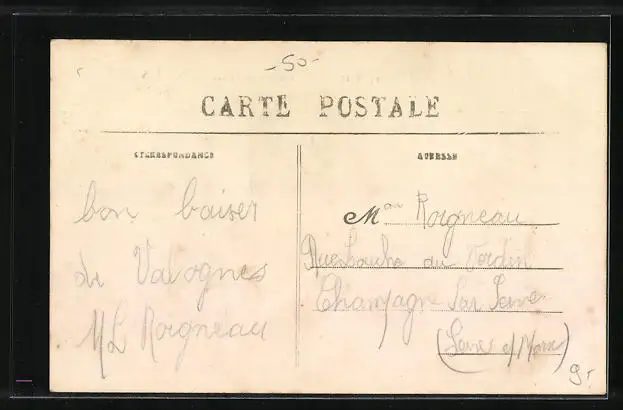 -50-
CARTE POSTALE
CORRESPONDANCE
ADRESSE
bon baiser
de Valognes
ML Roigneau
Mme Roigneau
du
Champagne Sur Seine
(Seine et Marne)
9